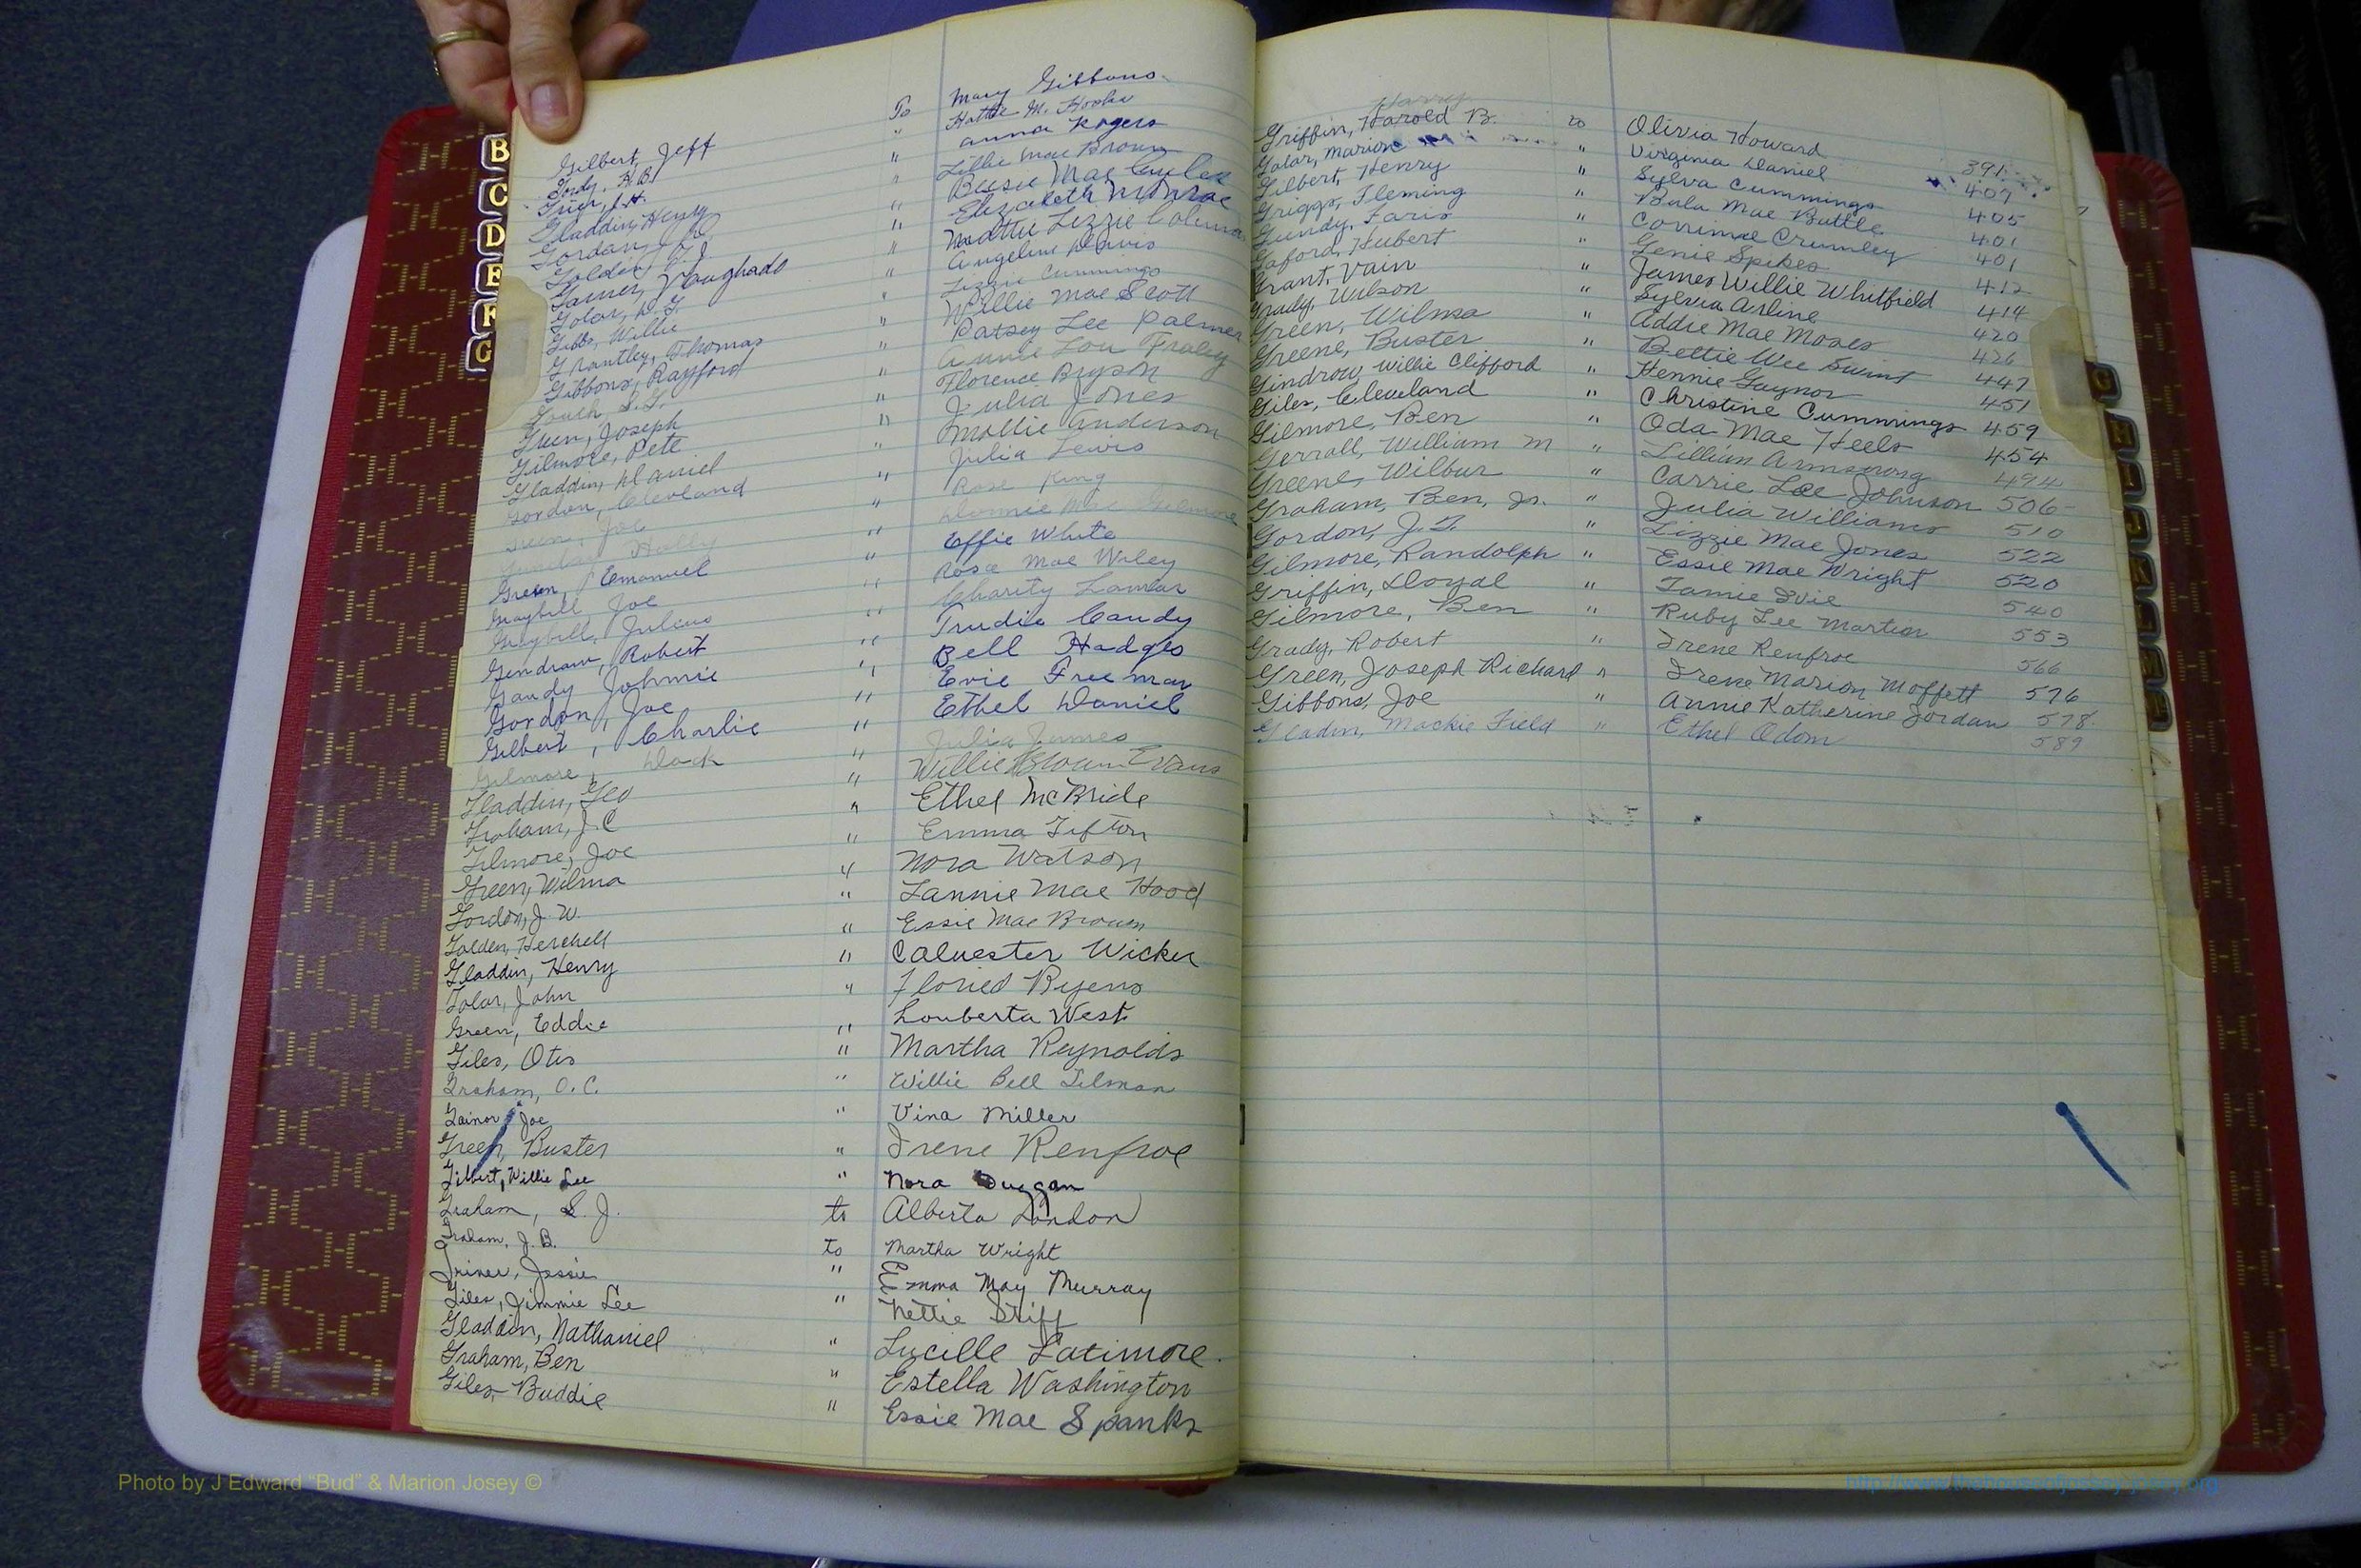 B
C
D
E
F
G
Gilbert, Jeff To Mary Gibbons
Gordy, H.B. " Hattie M. Hooks
Grier, " Anna Rogers
Gladdin, Henry " Lillie Mae Brown
Gordon, J. " Bessie Mae
Golden, " Elizabeth Monroe
Garner, Vaughado " Mattie Lizzie
Golar, " Angeline Davis
Gibbs, Willie " Lizzie Cummings
Grantley, Thomas " Willie Mae Scott
Gibbons, Rayford " Patsey Lee Palmer
S.T. " Annie Lou Fraley
Green, Joseph " Florence Bryson
Gilmore, Pete " Julia Jones
Gladdin, Daniel " Mollie Anderson
Gordon, Cleveland " Julia Lewis
Green, Joe " Rose King
" Mae Gilmore
Green, Emanuel " Effie White
Graybill, Joe " Rosa Mae Wiley
Graybill, Julius " Charity Lamar
Gendraw, Robert " Trudie Candy
Gandy Johnnie " Bell Hodges
Gordon, Joe " Evie Freeman
Gilbert, Charlie " Ethel Daniel
Gilmore, Dock " Julia James
Gladdin, Geo " Willie Evans
Graham, J.C " Ethel McBride
Gilmore, Joe " Emma Tifton
Green, Wilma " Nora Watson
Gordon, J. W. " Lannie Mae Hood
Golden, Herchell " Essie Mae Brown
Gladdin, Henry " Calvester Wicker
Golar, John " Floried Ryens
Green, Eddie " Louberta West
Giles, Otis " Martha Reynolds
Graham, O.C. " Willie Bell Tilman
Gainor, Joe " Vina Miller
Green, Buster " Irene Renfroe
Gilbert, Willie Lee " Nora Duggan
Graham, S. J. to Alberta London
Graham, J. B. to Martha Wright
Griner, Jessie " Emma May Murray
Giles, Jimmie Lee " Nettie Stiff
Gladdin, Nathaniel " Lucille Latimore
Graham, Ben " Estella Washington
Giles, Buddie " Essie Mae Spanks
Harry
Griffin, Harold B. to Olivia Howard 391
Golar, Marion " Virginia Daniel 407
Gilbert, Henry " Sylva Cummings 405
Griggs, Fleming " Bula Mae Buttle 401
Gundy, Faris " Corrinne Crumley 401
Gaford, Hubert " Genie Spikes 412
Grant, Vain " James Willie Whitfield 414
Grady, Wilson " Sylvia Arline 420
Green, Wilma " Addie Mae Moses 426
Greene, Buster " Bettie Wee Swint 447
Gindrow, Willie Clifford " Hennie Gaynor 451
Giles, Cleveland " Christine Cummings 459
Gilmore, Ben " Oda Mae Heels 454
Gerrall, William M " Lillian Armstrong 494
Greene, Wilbur " Carrie Lee Johnson 506
Graham, Ben, Jr. " Julia Williams 510
Gordon, J.T. " Lizzie Mae Jones 522
Gilmore, Randolph " Essie Mae Wright 520
Griffin, Doyal " Tamie Ivie 540
Gilmore, Ben " Ruby Lee Martin 553
Grady, Robert " Irene Renfroe 566
Green, Joseph Richard " Irene Marion Moffett 576
Gibbons, Joe " Annie Katherine Jordan 578
Gladin, Mackie Field " Ethel Odom 589
Photo by J Edward "Bud" & Marion Josey ©